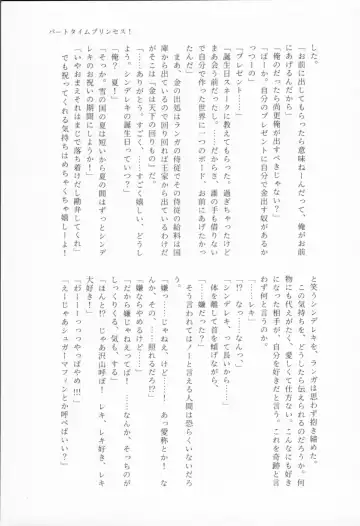 パートタイムプリンセス!
した。
「お前に出してもらったら意味ねーんだって、俺がお前
にあげるんだから」
「俺のだったら尚更俺が出すべきじゃない?」
「ばーか。自分のプレゼントに自分で金出す奴があるか
っつーの」
「プレゼント……」
「誕生日スネークに教えてもらった。過ぎちゃったけど
まあ会う前だし……だからさ、誰の手も借りない
で自分で作った世界に一つのボード、お前にあげたかっ
たんだ」
まあ、金の出処はランガの侍従でその侍従の給料は国
庫から出ているので回り回れば王家から出ているわけだ
がそこは「金は天下の回りもの」だ。
「……ありがとう。すごく、すごく嬉しい、どうし
よう。シンデレキの誕生日っていつ?」
「俺? 夏!」
「そっか。雪の国の夏は短いから夏の間はずっとシンデ
レキのお祝いの期間にしようか!」
「でも祝ってくれる気持ちはめちゃくちゃ嬉しーよ!
あんがと!」
と笑うシンデレキを、ランガは思わず抱き締めた。
この気持ちを、どうしたら伝えられるのだろうか。何
物にも代えがたく、愛しくて仕方ない。こんなにも好き
になった相手が、自分を好きだと言う。これを奇跡と言
わず何と言うのか。
「……レキ」
「!? なっ……なんっ……」
「シンデレキ、って長いから……」
体を離して首を傾げながら、
「……嫌だった?」
そう言われてはノーと言える人間は恐らくいないだろ
う。
「嫌っ……じゃねえ、けど……! あっ愛称とか! な
んか、その……照れるだろ!?」
「嫌ならやめるけど……」
「だから嫌じゃねえってば! ……なんか、そっちのが
しっくりくる、気も、する」
「ほんと!? じゃあ沢山呼ぼ! レキ、レキ好き、レキ
大好き!」
「がーーーっっっやっぱやめ!!!!」
「えーじゃあシュガーマフィンとか呼べばいい?」